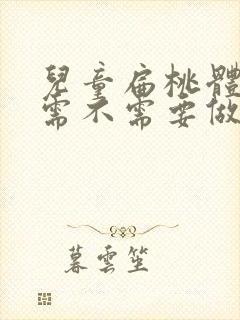 兒童扁桃體
需不需要做
暮雲笙